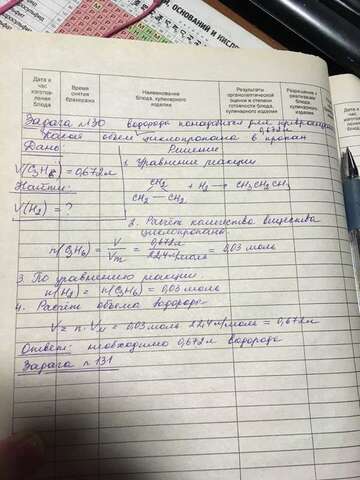 ОСНОВАНИЙ И КИСЛО
Дата и час изготов- ления блюда
Время снятия бракеража
Наименование блюда, кулинарного изделия
Результаты органолептической оценки и степени готовности блюда, кулинарного изделия
Разрешение к реализации блюда, кулинарного изделия
Задача №130 водорода понадобится для превращения
Какой объем циклопропана в пропан
0,672л
Дано
Решение
V(C3H6) = 0,672л
1. Уравнение реакции
Найти:
CH2
CH2 — CH2 + H2 → CH3CH2CH3
V(H2) = ?
2. Расчёт количества вещества
циклопропана
n(C3H6) = V/Vm = 0,672л/22,4л/моль = 0,03 моль
3. По уравнению реакции
n(H2) = n(C3H6) = 0,03 моль
4. Расчёт объема водорода
V = n · Vm = 0,03 моль 22,4л/моль = 0,672л
Ответ: необходимо 0,672л водорода
Задача №131